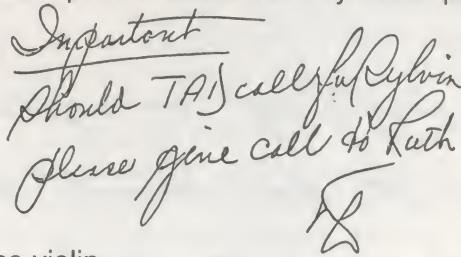 Important
Should TAI call for Sylvin
please give call to Ruth
violin